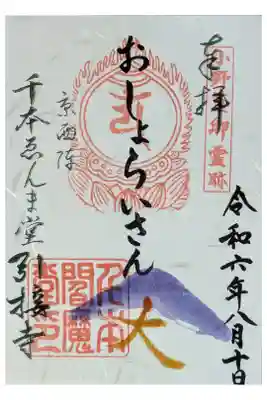 奉拝
小野篁卿霊跡
令和六年八月十日
おしょらいさん
大
京西陣
千本ゑんま堂
引接寺
千本閻魔堂印